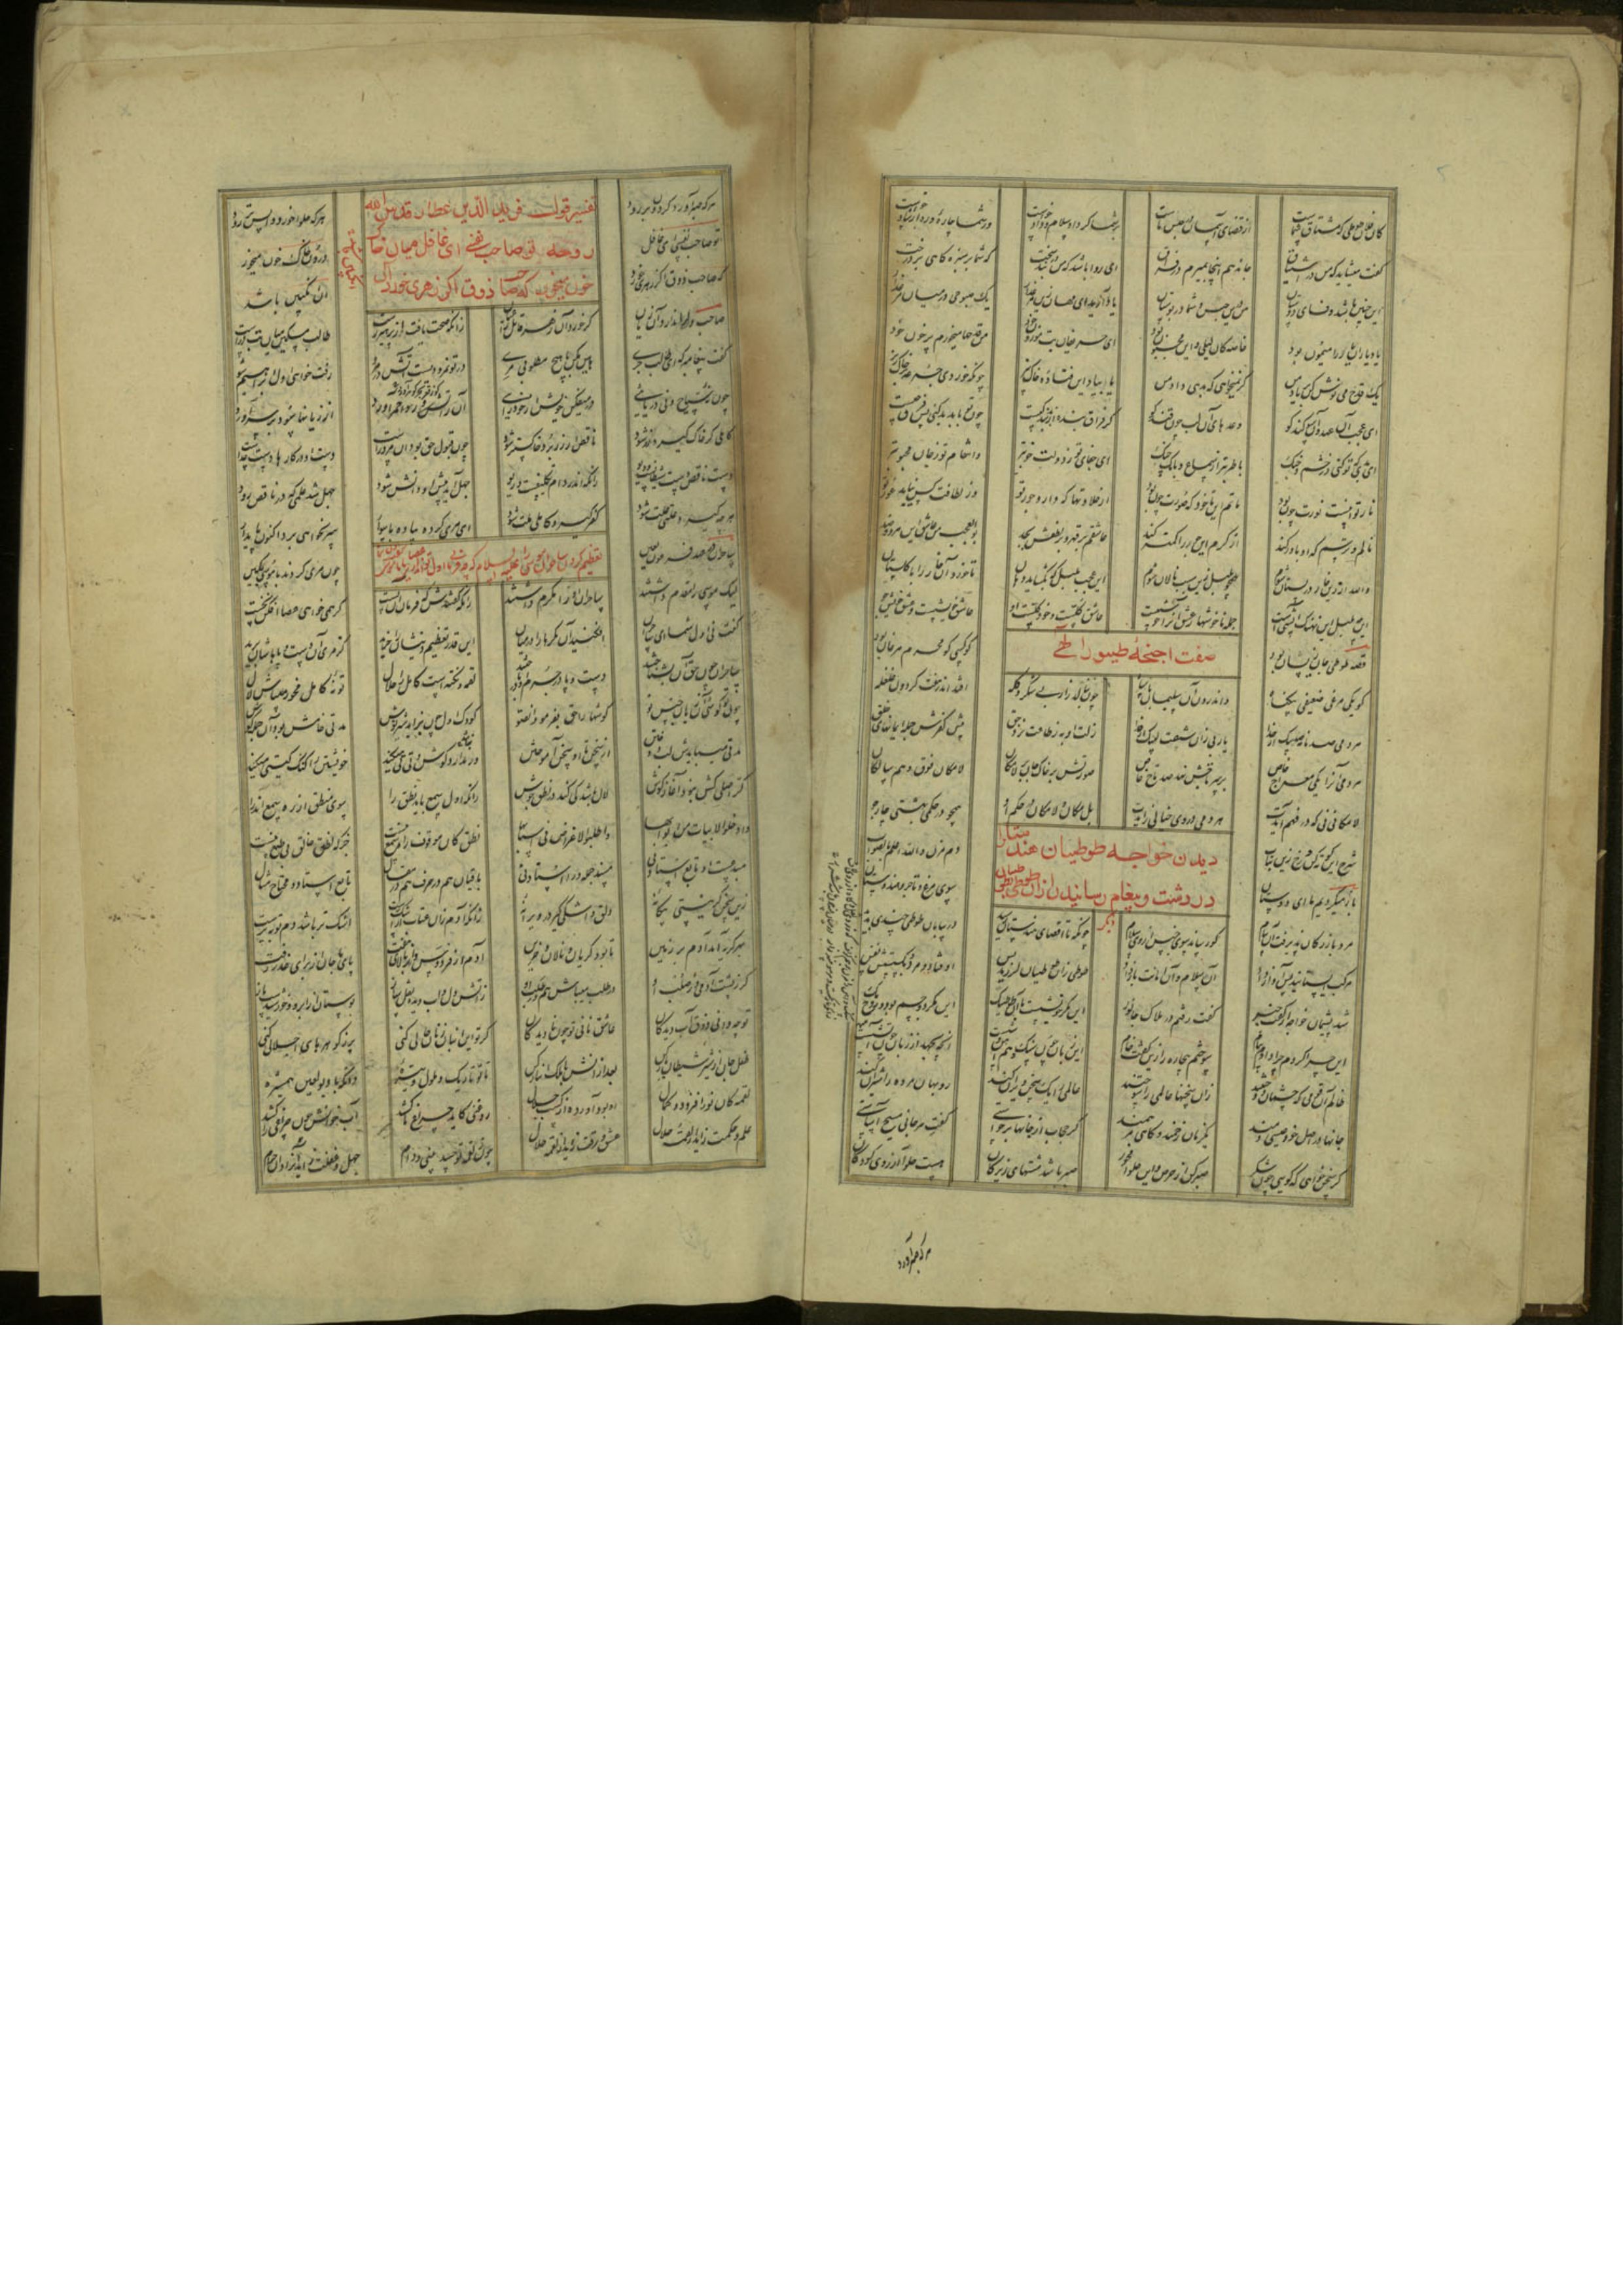 کان فلان طوطی که مشتاق شماست از قضای آسمان در حبس ماست بر شما کرد او سلام و داد خواست وز شما چاره و ره ارشاد خواست
گفت میشاید که من در اشتیاق جان دهم اینجا بمیرم در فراق این روا باشد که من در بند سخت که شما بر سبزه گاهی بر درخت
این چنین باشد وفای دوستان من درین حبس و شما در بوستان یاد آرید ای مهان زین مرغ زار یک صبوحی در میان مرغزار
یاد یاران یار را میمون بود خاصه کان لیلی و این مجنون بود ای حریفان بت موزون خود من قدحها میخورم پر خون خود
یک قدح می نوش کن بر یاد من گر نمیخواهی که بدهی داد من یا بیاد این فتاده خاک بیز چونکه خوردی جرعه بر خاک ریز
ای عجب آن عهد و آن سوگند کو وعدهای آن لب چون قند کو گر فراق بنده از بد بندگیست چون تو با بد بد کنی پس فرق چیست
ای بدی که تو کنی در خشم و جنگ با طرب تر از سماع و بانگ چنگ ای جفای تو ز دولت خوبتر و انتقام تو ز جان محبوبتر
نار تو اینست نورت چون بود ماتم این تا خود که سورت چون بود از حلاوتها که دارد جور تو وز لطافت کس نیابد غور تو
نالم و ترسم که او باور کند از کرم این جور را کمتر کند عاشقم بر قهر و بر لطفش بجد بوالعجب من عاشق این هر دو ضد
والله ار زین خار در بستان شوم همچو بلبل زین سبب نالان شوم این عجب بلبل که بگشاید دهان تا خورد آن خار را با گلستان
این چه بلبل این نهنگ آتشیست جمله ناخوشها ز عشق او را خوشیست عاشق کلست و خود کلست او عاشق خویشست و عشق خویش جو
صفت اجنحه طیور الهی
قصه طوطی جان زینسان بود کو کسی کو محرم مرغان بود
کو یکی مرغی ضعیفی بیگناه و اندرون آن سلیمان با سپاه چون بنالد زار بی شکر و گله افتد اندر هفت گردون غلغله
هر دمی صد نامه صد پیک از خدا یا ربی زان شصت لبیک از خدا زلت او به ز طاعت نزد حق پیش کفرش جمله ایمانها خلق
هر دمی او را یکی معراج خاص بر سر تاجش نهد صد تاج خاص صورتش بر خاک و جان بر لامکان لامکانی فوق وهم سالکان
لامکانی نی که در فهم آیدت هر دمی در وی خیالی زایدت بل مکان و لامکان در حکم او همچو در حکم بهشتی چار جو
شرح این کوته کن و رخ زین بتاب دم مزن والله اعلم بالصواب
دیدن خواجه طوطیان هندستان
در دشت و پیغام رسانیدن از آن طوطی بطوطیان دیگر
باز میگردیم ما ای دوستان سوی مرغ و تاجر و هندوستان
مرد بازرگان پذیرفت آن پیام کو رساند سوی جنس از وی سلام چونکه تا اقصای هندستان رسید در بیابان طوطی چندی بدید
مرکب استانید پس آواز داد آن سلام و آن امانت باز داد طوطی زان طوطیان لرزید بس اوفتاد و مرد و بگسستش نفس
شد پشیمان خواجه از گفت خبر گفت رفتم در هلاک جانور این مگر خویشست با آن طوطیک این مگر دو جسم بود و روح یک
این چرا کردم چرا دادم پیام سوختم بیچاره را زین گفت خام این زبان چون سنگ و هم آتش وشست آنچه بجهد از زبان چون آتشست
ظالم آن قومی که چشمان دوختند زان سخنها عالمی را سوختند عالمی را یک سخن ویران کند روبهان مرده را شیران کند
جانها در اصل خود عیسی دمند یک زمان زخمند و گاهی مرهمند گر حجاب از جانها برخواستی گفت هر جانی مسیح آساستی
گر سخن خواهی که گویی چون شکر صبر کن از حرص و این حلوا مخور صبر باشد مشتهای زیرکان هست حلوا آرزوی کودکان
هر که صبر آورد گردون بر رود هر که حلوا خورد واپس تر رود
تفسیر قول فرید الدین عطار قدس الله
روحه تو صاحب نفسی ای غافل میان خاک
خون میخور که صاحب ذوق اگر زهری خورد آن
انگبین باشد
تو صاحب نفسی ای غافل درون خاک خون میخور
که صاحب ذوق اگر زهری خورد آن انگبین باشد
صاحب دل را ندارد آن زیان گر خورد آن زهر قاتل را عیان زانکه صحت یافت از پرهیز رست طالب مسکین میان تب درست
گفت پیغامبر که ای طالب جری هان مکن با هیچ مطلوبی مری در تو نمرودیست آتش در مرو رفت خواهی اول ابراهیم شو
چون نه سباح و نی دریایی در میفکن خویش از خودرایی آن ز آتش ورد احمر آورد از زیانها سود بر سر آورد
کاملی گر خاک گیرد زر شود ناقص ار زر برد خاکستر شود چون قبول حق بود آن مرد راست دست او در کارها دست خداست
دست ناقص دست شیطانست و دیو زانکه اندر دام تکلیفست و ریو جهل آید پیش او دانش شود جهل شد علمی که در ناقص رود
هر چه گیرد علتی علت شود کفر گیرد کاملی ملت شود ای مری کرده پیاده با سوار سر نخواهی برد اکنون پای دار
تعظیم کردن ساحران موسی را علیه السلام که چه فرمائی اول تو اندازی عصا یا ما
ساحران در عهد فرعون لعین چون مری کردند با موسی بکین
لیک موسی را مقدم داشتند ساحران او را مکرم داشتند زانکه گفتندش که فرمان آن تست گر همی خواهی عصا افکن نخست
گفت نی اول شما ای ساحران افکنید آن مکرها را در میان این قدر تعظیم دینشان را خرید کز مری آن دست و پاهاشان برید
ساحران چون حق او بشناختند دست و پا در جرم آن درباختند لقمه و نکته است کامل را حلال تو نه کامل مخور می باش لال
چون تو گوشی او زبان نی جنس تو گوشها را حق بفرمود انصتوا کودک اول چون بزاید شیر نوش مدتی خامش بود او جمله گوش
مدتی می بایدش لب دوختن از سخن تا او سخن آموختن ور ندارد گوش و تی تی میکند خویشتن را گنگ گیتی میکند
کر اصلی کش نبود آغاز گوش لال باشد کی کند در نطق جوش زانکه اول سمع باید نطق را سوی منطق از ره سمع اندر آ
ادخلوا الابیات من ابوابها واطلبوا الاغراض فی اسبابها نطق کان موقوف راه سمع نیست جز که نطق خالق بی طمع نیست
مبدعست او تابع استاد نی مسند جمله ورا اسناد نی باقیان هم در حرف هم در مقال تابع استاد و محتاج مثال
زین سخن گر نیستی بیگانه دلق و اشکی گیر در ویرانه زانکه آدم زان عتاب از اشک رست اشک تر باشد دم توبه پرست
بهر گریه آمد آدم بر زمین تا بود گریان و نالان و حزین آدم از فردوس و از بالای هفت پای ماچان از برای عذر رفت
گر ز پشت آدمی وز صلب او در طلب میباش هم در طلب او ز آتش دل و آب دیده نقل ساز بوستان از ابر و خورشیدست باز
تو چه دانی ذوق آب دیدگان عاشق نانی تو چون نادیدگان گر تو این انبان ز نان خالی کنی پر ز گوهرهای اجلالی کنی
طفل جان از شیر شیطان باز کن بعد از انش با ملک انباز کن تا تو تاریک و ملول و تیره دانکه با دیو لعین همشیره
لقمه کان نور افزود و کمال آن بود آورده از کسب حلال روغنی کاید چراغ ما کشد آب خوانش چون چراغی را کشد
علم و حکمت زاید از لقمه حلال عشق و رقت زاید از لقمه حلال چون ز لقمه تو حسد بینی و دام جهل و غفلت زاید آن را دان حرام